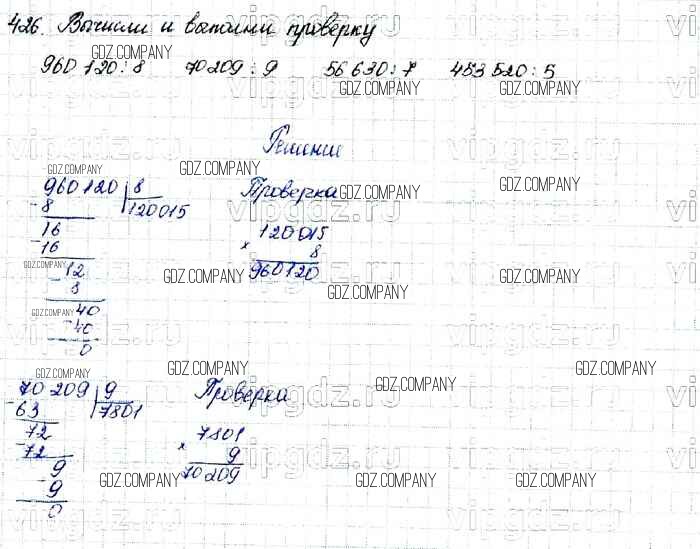 426. Вычисли и выполни проверку
960 120 : 8   70 209 : 9   56 630 : 7   453 520 : 5
Решение
960120 | 8
-8 | 120015
16
-16
12
- 8
40
-40
0
Проверка
120015
× 8
960120
70 209 | 9
-63 | 7801
72
-72
9
-9
0
Проверка
7801
× 9
70209
GDZ.COMPANY
vipgdz.ru